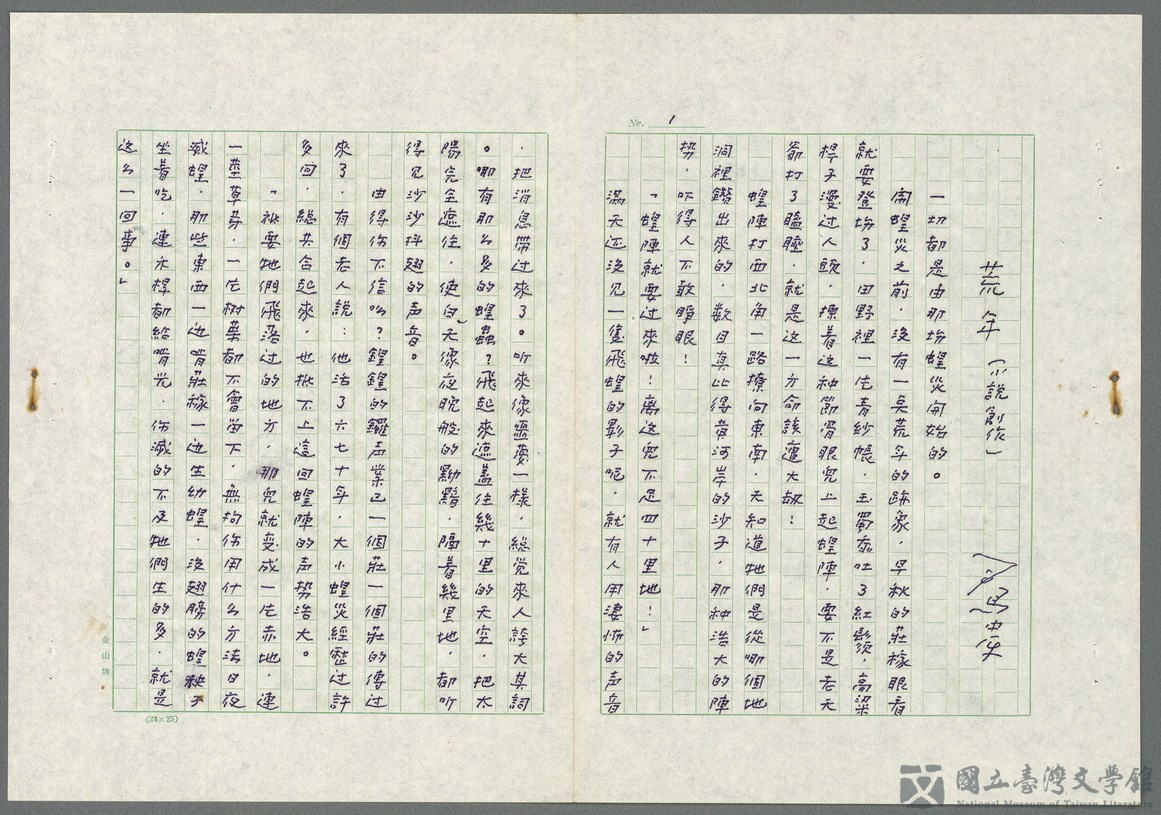 No. 1
荒年（小說創作）
司馬中原
一切都是由那场蝗災開始的。
鬧蝗災之前．沒有一点荒年的跡象．早秋的莊稼眼看
就要登场了．田野裡一片青紗帳．玉蜀黍吐了紅鬚．高粱
桿子漫过人頭．揀着这种節骨眼兒上起蝗陣．要不是老天
爺打了瞌睡．就是这一方命該遭大刼！
蝗陣打西北角一路撩向東南．天知道牠們是從哪個地
洞裡鑽出來的．数目真比得黄河岸的沙子．那种浩大的陣
势．吓得人不敢睜眼！
「蝗陣就要过來啦！离这兒不足四十里地！」
滿天还沒见一隻飛蝗的影子呢．就有人用凄怖的声音
．把消息帶过來了。听來像噩夢一樣．総觉來人誇大其詞
。哪有那么多的蝗蟲？飛起來遮蓋住幾十里的天空．把太
陽完全遮住．使白天像夜晚般的黝黯．隔着幾里地．都听
得见沙沙抖翅的声音。
由得你不信吗？鍠鍠的鑼声業已一個莊一個莊的傳过
來了．有個老人說：他活了六七十年．大小蝗災經歷过許
多回．総共合起來．也抵不上這回蝗陣的声势浩大。
「祗要牠們飛落过的地方．那兒就变成一片赤地．連
一莖草芽．一片树葉都不會留下．無拘你用什么方法日夜
滅蝗．那些東西一边啃莊稼一边生幼蝗．沒翅膀的蝗秧子
坐着吃．連禾桿都給啃光．你滅的不及牠們生的多．就是
这么一回事。」
金山牌
(24×25)
國立臺灣文學館
National Museum of Taiwan Literature